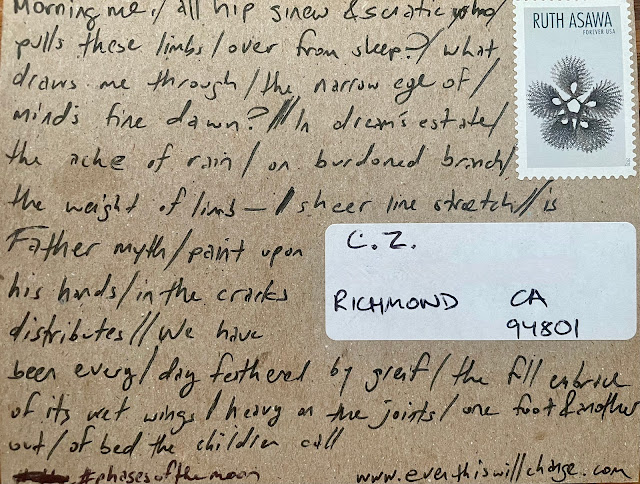 Morning me,/ all hip sinew & sciatic, who/
pulls these limbs/over from sleep?/ what
draws me through/the narrow eye of/
mind's fine dawn?//In dream's estate/
the ache of rain/on burdoned branch/
the weight of limb—/sheer line stretch//is
Father myth/paint upon
his hands/in the cracks
distributes//We have
been every/day feathered by greif/the full embrace
of its wet wings/heavy on the joints/one foot & another
out/of bed the children call
#phasesofthemoon
www.eventhiswillchange.com
RUTH ASAWA
FOREVER USA
C. Z.
RICHMOND CA
94801